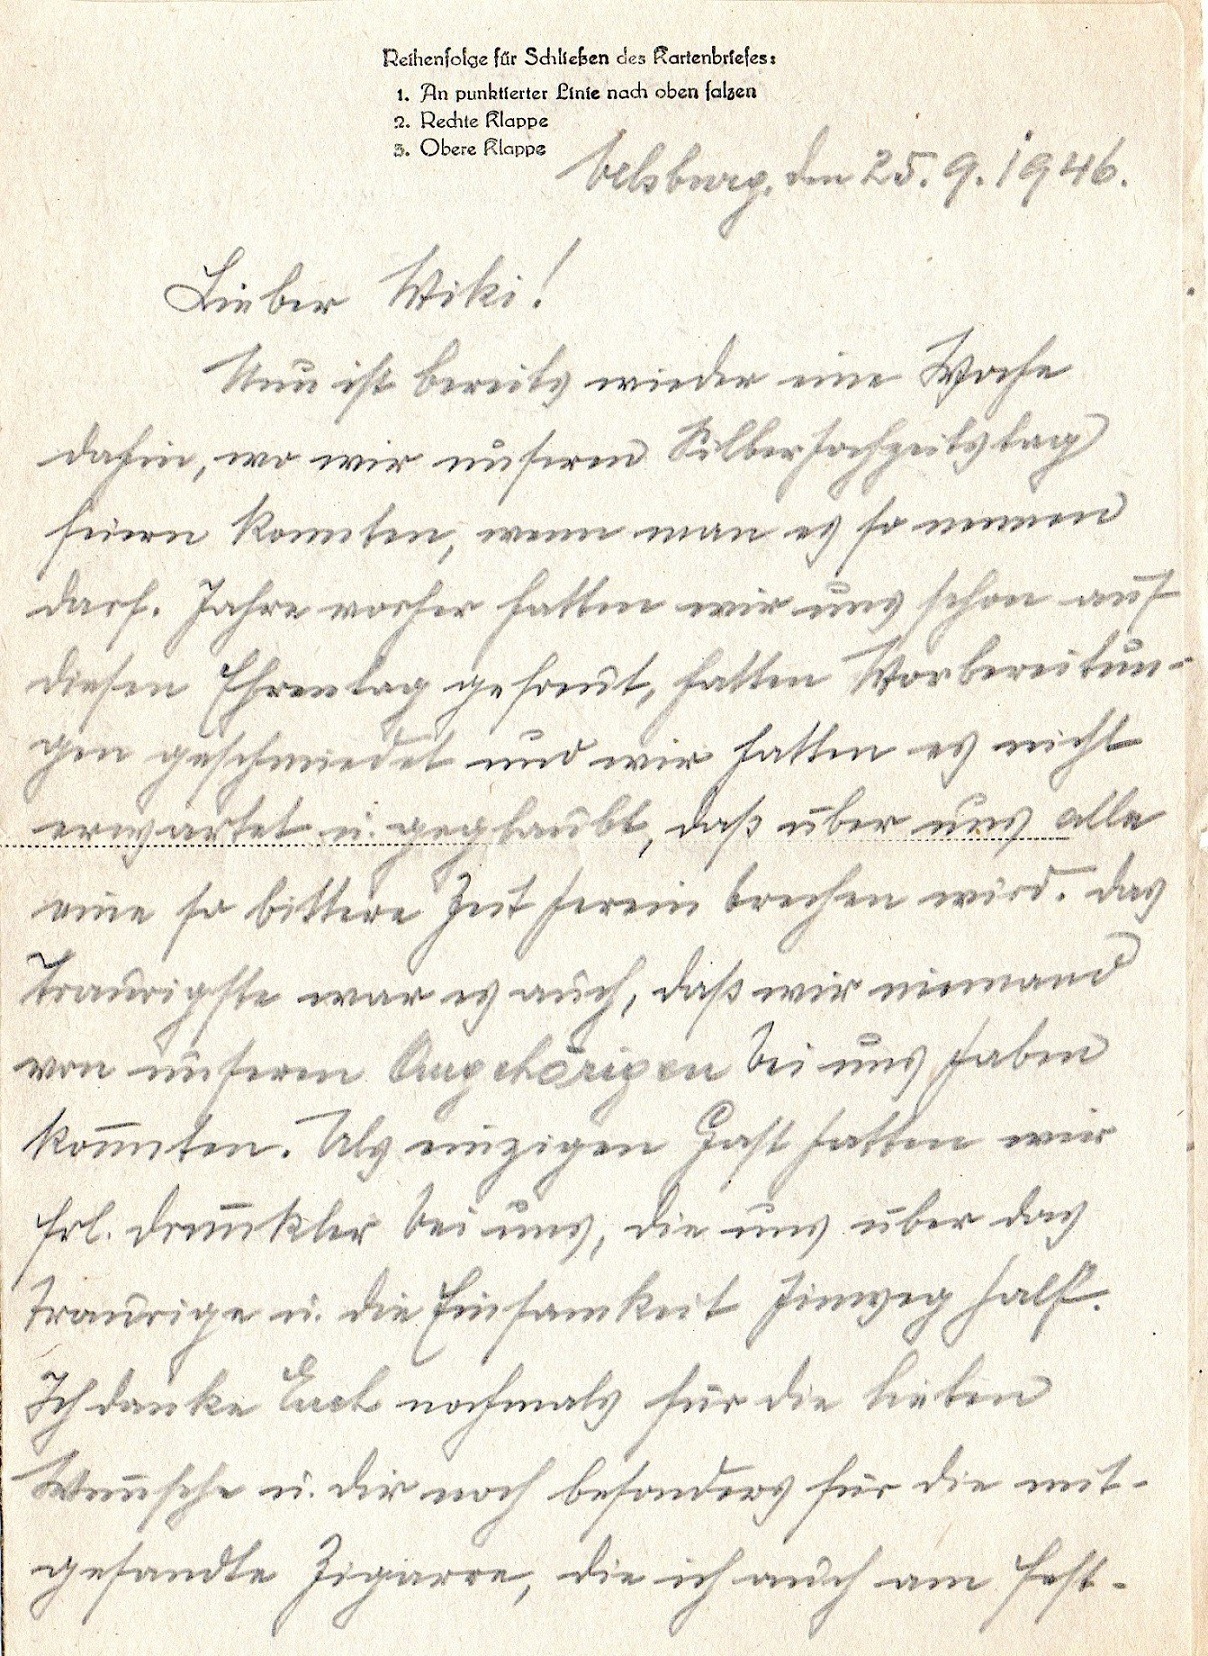 Reihenfolge für Schließen des Kartenbriefes:
1. An punktierter Linie nach oben falzen
2. Rechte Klappe
3. Obere Klappe
den 25.9.1946.
Lieber Wiki!
Nun ist bereits wieder eine Woche
dahin, wo wir unseren Silberhochzeitstag
feiern konnten, wenn man es so nennen
darf. Jahre vorher hatten wir uns schon auf
diesen Ehrentag gefreut, hatten Vorbereitun-
gen geschmiedet und wir hatten es nicht
erwartet u. geglaubt, daß über uns alle
eine so bittere Zeit herein brechen wird. Das
Traurigste war es auch, daß wir niemand
von unseren Angehörigen bei uns haben
konnten. Als einzigen Gast hatten wir
Frl. bei uns, die uns über das
Traurige u. die Einsamkeit hinweg half.
Ich danke Euch nochmals für die lieben
Wünsche u. dir noch besonders für die mit-
gesandte Zigarre, die ich auch am Fest-